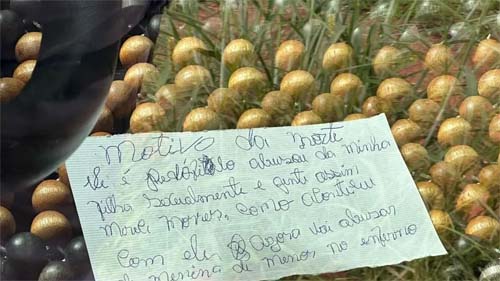 Motivo da morte
Se é Pedófilo abusou da minha
filha Sexualmente e gente assim
Morrer, como aconteseu
com ele Agora vai abusar
de menina de menor no enferno